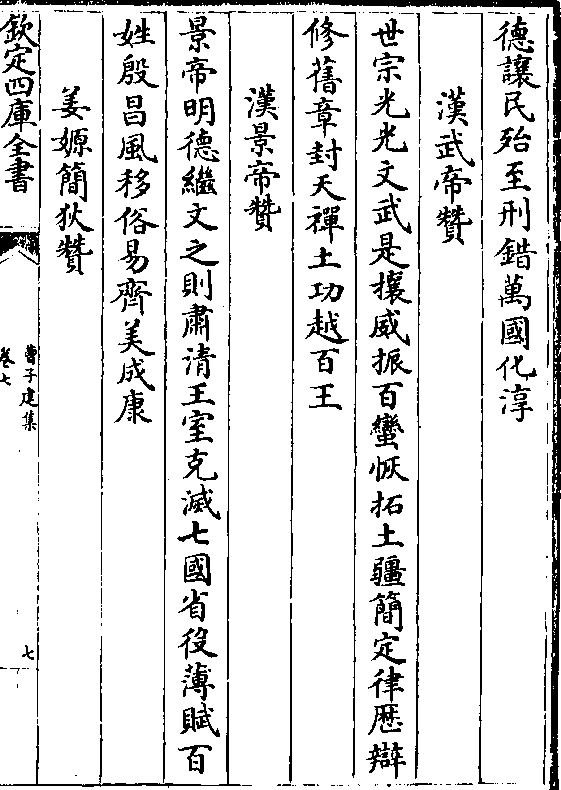 德讓民殆至刑錯萬國化淳
漢武帝贊
世宗光光文武是攘威振百蠻恢拓土疆簡定律歴辯
修舊章封天禪土功越百王
漢景帝贊
景帝明德繼文之則肅清王室克滅七國省役薄賦百
姓殷昌風移俗易齊美成康
姜嫄簡狄贊
欽定四庫全書
曹子建集
卷七
七